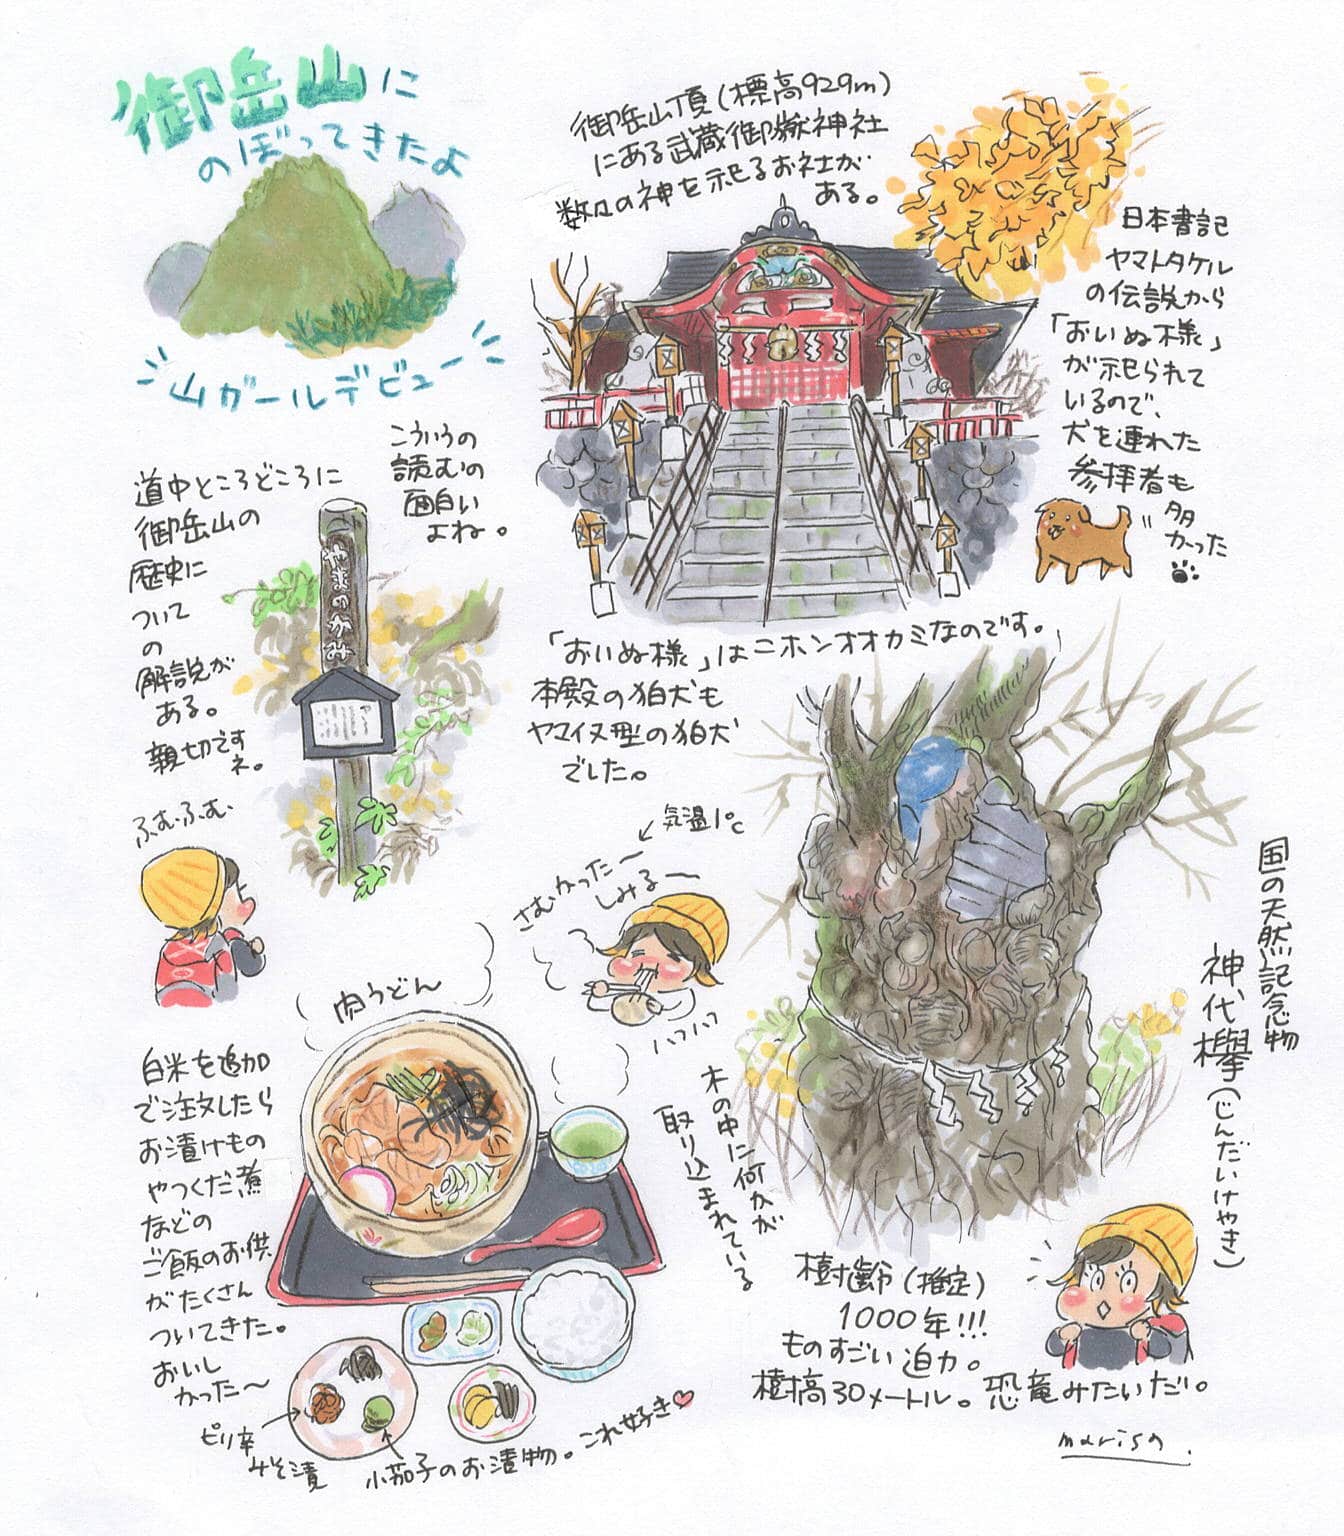 御岳山に
のぼってきたよ
山ガールデビュー
御岳山頂(標高929m)
にある武蔵御嶽神社
数々の神を祀るお社が
ある。
日本書記
ヤマトタケル
の伝説から
「おいぬ様」
が祀られて
いるので、
犬を連れた
参拝者も
多
かった
「おいぬ様」はニホンオオカミなのです。
本殿の狛犬も
ヤマイヌ型の狛犬
でした。
道中ところどころに
御岳山の
歴史に
ついて
の
解説が
ある。
親切です
ネ。
こういうの
読むの
面白い
よね。
やまのかみ
ふむふむ
気温1℃
さむかった〜
しみる〜
ハフハフ
肉うどん
白米を追加
で注文したら
お漬けもの
やつくだ煮
などの
ご飯のお供
がたくさん
ついてきた。
おいし
かった〜
ピリ辛
みそ漬
小茄子のお漬物。これ好き♥
国の天然記念物
神代欅(じんだいけやき)
木の中に何かが
取り込まれている
樹齢(推定)
1000年!!!
ものすごい迫力。
樹高30メートル。恐竜みたいだ。
marisa